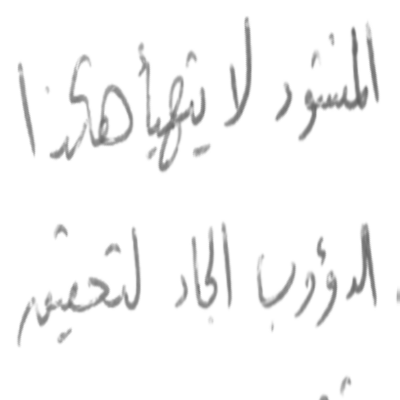 المنشود لا يتهيأ هكذا
الدؤوب الجاد لتحقيق